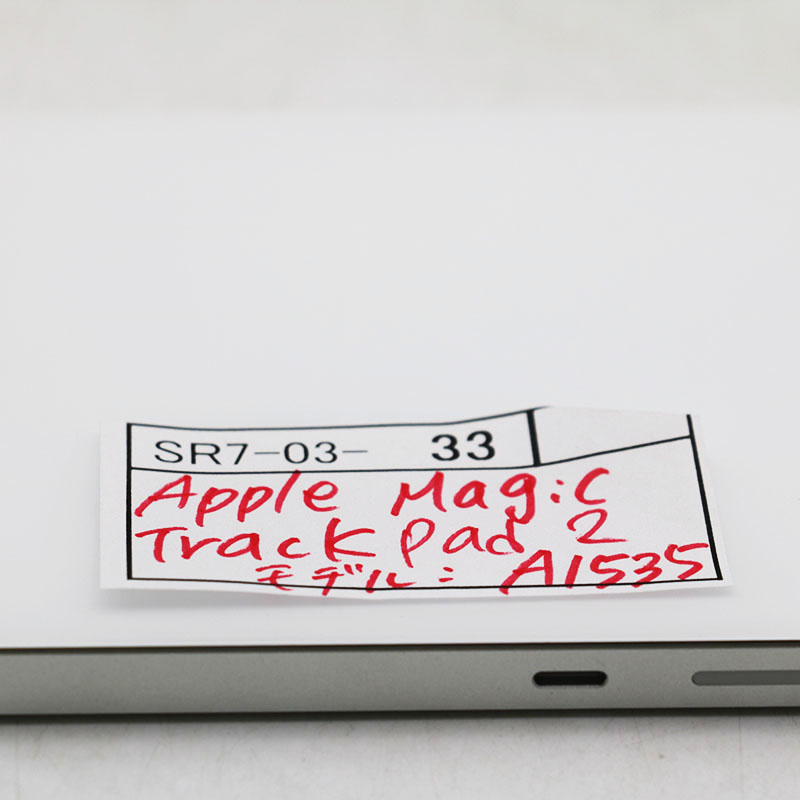 SR7-03- 33
Apple Magic
Trackpad 2
モデル: A1535